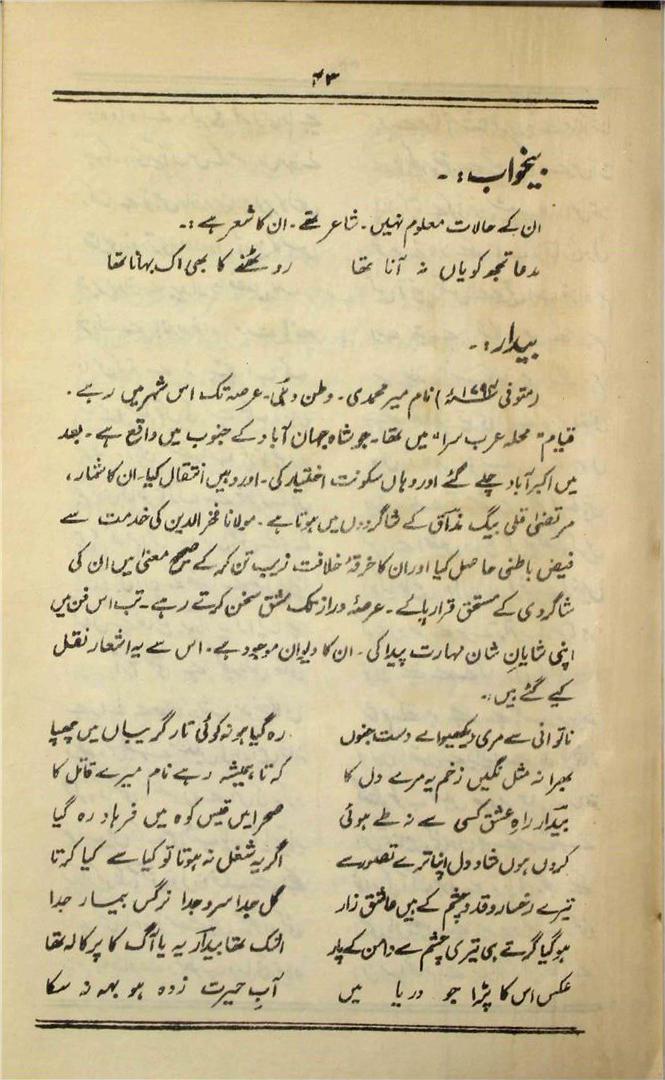 ۴۳
بیخواب:۔
ان کے حالات معلوم نہیں۔ شاعر تھے۔ ان کا شعر ہے:۔
مدعا تجھ کو یاں نہ آنا تھا روٹھنے کا بھی اک بہانا تھا
بیدار:۔
(متوفی ۱۷۹۴ء) نام میر محمدی۔ وطن دہلی۔ عرصہ تک اس شہر میں رہے۔
قیام "محلہ عرب سرا" میں تھا۔ جو شاہ جہان آباد کے جنوب میں واقع ہے۔ بعد
میں اکبر آباد چلے گئے اور وہاں سکونت اختیار کی۔ اور وہیں انتقال کیا۔ ان کا شمار،
مرتضیٰ قلی بیگ مذاق کے شاگردوں میں ہوتا ہے۔ مولانا فخر الدین کی خدمت سے
فیض باطنی حاصل کیا اور ان کا خرقۂ خلافت زیب تن کر کے صحیح معنیٰ میں ان کی
شاگردی کے مستحق قرار پائے۔ عرصۂ دراز تک مشق سخن کرتے رہے۔ تب اس فن میں
اپنی شایانِ شان مہارت پیدا کی۔ ان کا دیوان موجود ہے۔ اس سے یہ اشعار نقل
کیے گئے ہیں:۔
ناتوانی سے مری دیکھیو اے دست جنوں رہ گیا ہو نہ کوئی تار گریباں میں چھپا
بھرا نہ مثل نگیں زخم یہ مرے دل کا کہ تا ہمیشہ رہے نام میرے قاتل کا
بیدار راہِ عشق کسی سے نہ طے ہوئی صحرا میں قیس کوہ میں فرہاد رہ گیا
کروں ہوں شاد دل اپنا ترے تصور سے اگر یہ شغل نہ ہوتا تو کیا سے کیا کرتا
تیرے رخسار و قد و چشم کے ہیں عاشق زار گل جدا سرو جدا نرگس بیمار جدا
ہو گیا گرتے ہی تیری چشم سے دامن کے پار اشک تھا بیدار یہ یا آگ کا پرکالہ تھا
عکس اس کا پڑا جو دریا میں آبِ حیرت زدہ ہو بہہ نہ سکا